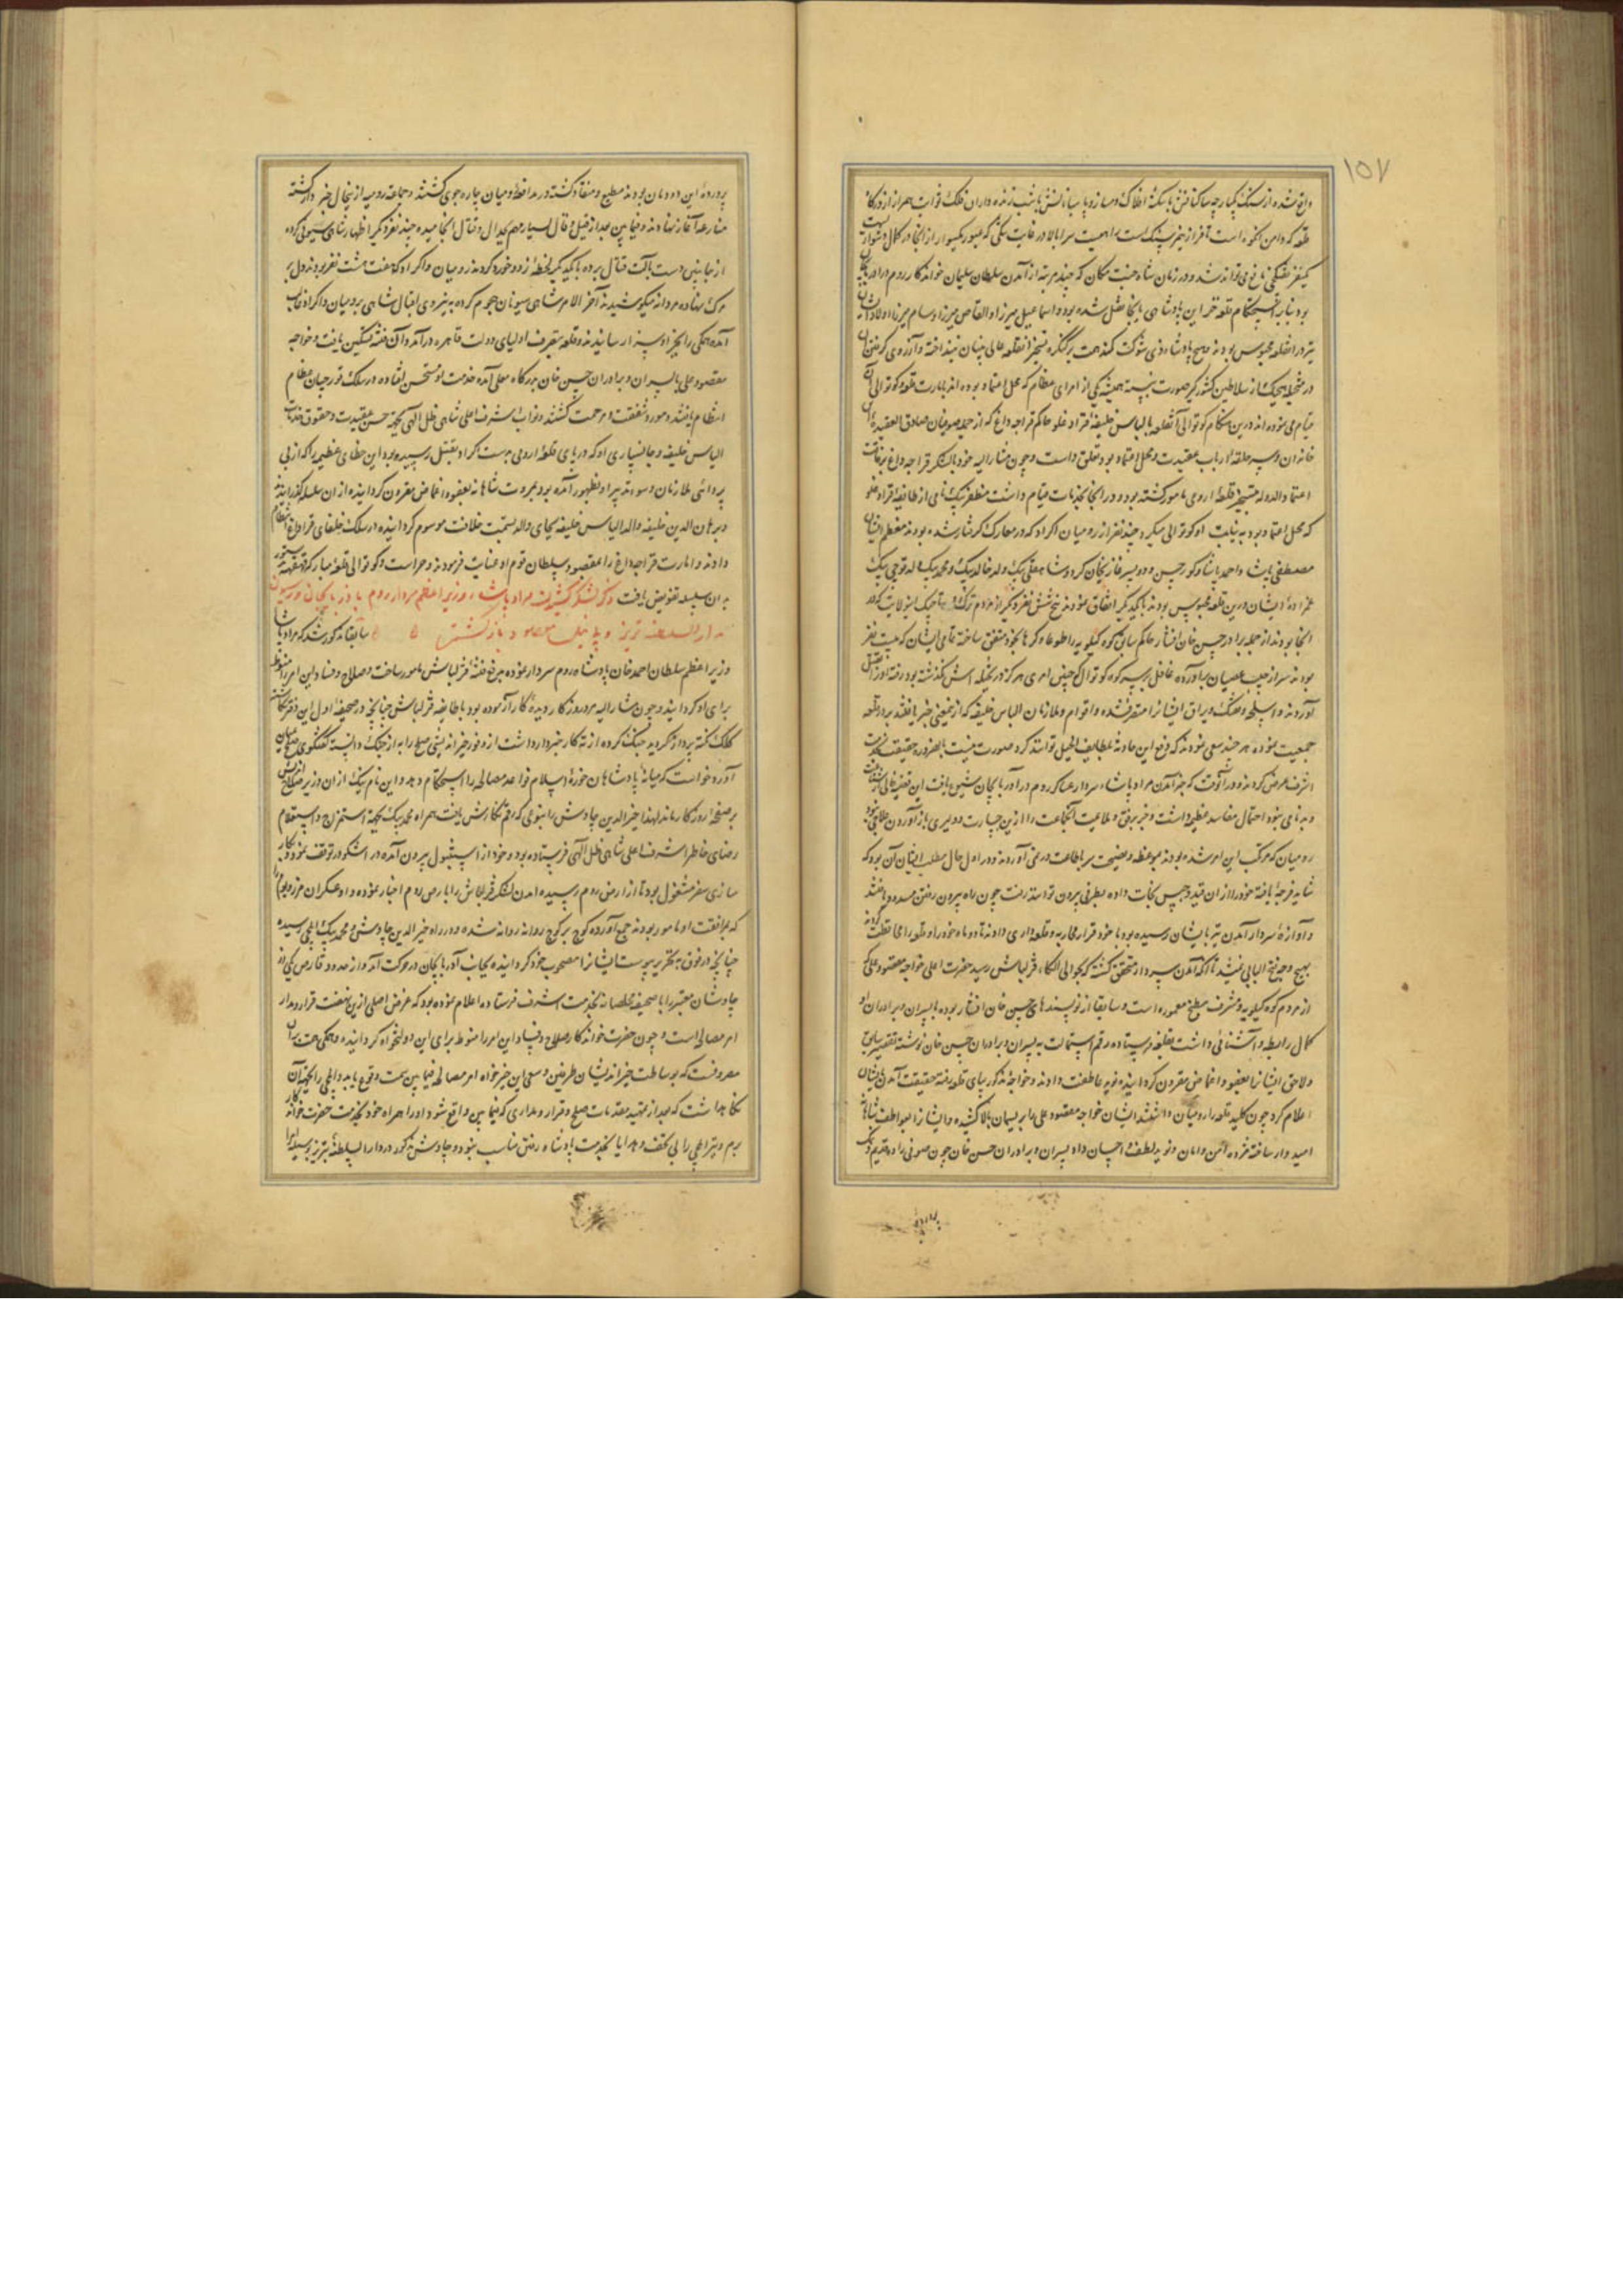 ۱۵۷
واقع شده از سنگ یکپارچه ساکنانش با سکنه افلاک دمساز و پاسبانانش با شب زنده داران فلک ثوابت همراز از در کار
قلعه که دامن کوه است تا فراز همه سنگ است راهیست سر بالا در غایت تنگی که عبور یکسوار از آنجا در کمال دشواریست
یکنفر تفنگچی مانع می تواند شد و در زمان شاه جنت مکان که چند مرتبه از آمدن سلطان سلیمان خواندگار روم در آذربایجان
بود بنا بر استحکام قلعه خزاین پادشاهی بآنجا نقل شده بود و اسماعیل میرزا و القاص میرزا و سام میرزا و اولاد ایشان
نیز در آنقلعه محبوس بودند و هیچ پادشاه ذی شوکت کمند همت بر کنگره تسخیر آنقلعه عالی بنیان نینداخته و آرزوی گرفتن آن
در مخیله هیچیک از سلاطین کشورگیر صورت نبسته همیشه یکی از امرای عظام که محل اعتماد بوده اند بامارت قلعه و کوتوالی آن
قیام می نموده اند درین هنگام کوتوالی آنقلعه بالیاس خلیفه قراداغلو حاکم قراجه داغ که از جمله صوفیان صادق العقیده این
خاندان و سرحلقه ارباب عقیدت و محل اعتماد بود تعلق داشت و چون مشارالیه خود با لشکر قراجه داغ برفاقت
اعتماد الدوله بتسخیر قلعه ارومی مامور گشته بود و در آنجا بخدمات قیام داشت مظفر بیک نامی از طایفه قراداغلو
که محل اعتماد بود به نیابت او کوتوالی میکرد چند نفر از رومیان و اکراد که در معارک گرفتار شده بودند معظم ایشان
مصطفی پاشا و احمد پاشا و کور حسین و دو پسر غازیخان کرد و شاهقلی بیک ولد خالد بیک و محمد بیک ولد قوچی بیک
عمزاده ایشان درین قلعه محبوس بودند با یکدیگر اتفاق نمودند پنج شش نفر دیگر از مردم ترک و تاجیک اینولایت که در
آنجا بودند از جمله برادر حسن خان افشار حاکم سابق کوه کیلویه را طوعا و کرها بخود متفق ساخته تمامی ایشان که بیست نفر
بودند سر از جیب عصیان برآورده غافل بر سر کوتوال که چنین امری هرگز در مخیله اش نگذشته بود رفته او را بقتل
آوردند و اسلحه و تفنگ و یراق ایشانرا متصرف شده و اقوام و ملازمان الیاس خلیفه که از نیمعنی خبر یافتند بر در قلعه
جمعیت نموده هر چند سعی نمودند که دفع این حادثه بلطایف الحیل توانند کرد صورت نبست بالضروره حقیقت بخدمت
اشرف عرض کردند و در آنوقت که خبر آمدن مراد پاشا سردار عساکر روم در آذربایجان شیوع یافت این قضیه خالی از شناعت
و بدنامی نبود احتمال مفاسد عظیمه داشت و جز برفق و ملاعبت آنجماعت را از این جسارت و دلیری باز آوردن علاجی نبود
رومیان که مرتکب این امر شده بودند بموعظه و نصیحت سر باطاعت در نمی آوردند و در اول حال مطلب ایشان آن بود که
شاید فرجه یافته خود را از آن قید و حبس نجات داده بطرفی بیرون توانند رفت چون راه بیرون رفتن مسدود یافتند
و آوازه سردار آمدن تبریز بایشان رسیده بود با خود قرار محاربه و قلعه داری دادند تا دو ماه خود را و قلعه را محافظت کردند
بهیچ وجه فتح البابی نمیشد تا آنکه آمدن سردار متحقق گشته که بحوالی الکاء قزلباش رسید حضرت اعلی خواجه مقصود علی که
از مردم کوه کیلویه و مشرف مطبخ معموره است و سابقا از نویسندهای حسن خان افشار بوده با پسران و برادران او
کمال رابطه و آشنائی داشت بقلعه فرستاده رقم استمالت به پسران و برادران حسن خان نوشته تقصیر سابق
و لاحق ایشانرا بعفو و اغماض مقرون گردانیده نوید عاطفت دادند و خواجه مذکور بپای قلعه رفته حقیقت آمدن بایشان
اعلام کرد چون کلید قلعه را رومیان داشتند ایشان خواجه مقصود علی را بریسمان بالا کشیده و ایشانرا بعواطف شاهانه
امیدوار ساخته مژده امن و امان و نوید لطف و احسان داد پسران و برادران حسن خان چون صوفی زاده قدیم و نمک
پرورده این دودمان بودند مطیع و منقاد گشته در مدافعه رومیان چاره جوی گشتند و جماعه رومیه از ینحال خبردار گشته
منازعه آغاز نهادند و فیمابین بعد از قیل و قال بسیار مهم بجدال و قتال انجامیده چند نفر دیگر اظهار شاهی سیونی کرده
از جانبین دست بآلت قتال برده با یکدیگر لحظه زد و خورد کردند رومیان و اکراد که هفت هشت نفر بودند دل بر
مرک نهاده مردانه میکوشیدند آخر الامر شاهی سیونان هجوم کرده به نیروی اقبال شاهی بر رومیان و اکراد غالب
آمده همگی را بجزا و سزا رسانیدند و قلعه بتصرف اولیای دولت قاهره درآمد و آن فتنه تسکین یافت و خواجه
مقصود علی با پسران و برادران حسن خان بدرگاه معلی آمده خدمت او مستحسن افتاده در سلک قورچیان عظام
انتظام یافتند و مورد شفقت و مرحمت گشتند و نواب اشرف اعلی شاهی ظل الهی بجهت حسن عقیدت و حقوق خدمات
الیاس خلیفه و جانسپاری او که در پای قلعه ارومی بدست اکراد بقتل رسیده بود این خطای عظیم را که از بی
پروائی ملازمان و سوء تدبیر او بظهور آمده بود بمروت شاهانه بعفو و اغماض مقرون گردانیده از آن سلسله نگذرانیدند
و برهان الدین خلیفه والد الیاس خلیفه بجای والد بسمت خلافت موسوم گردانیده در سلک خلفای قراداغ انتظام
دادند و امارت قراجه داغ را بمقصود سلطان قوم او عنایت فرمودند و حراست و کوتوالی قلعه مبارکه قهقهه بدستور
بدان سلسله تفویض یافت ذکر لشکر کشیدن مراد پاشاء وزیر اعظم سردار روم باذربایجان و رسیدن
بدار السلطنه تبریز و بی نیل مقصود بازگشتن سابقا مذکور شد که مراد پاشا
وزیر اعظم سلطان احمد خان پادشاه روم سردار بوده بدفع فتنه قزلباش مامور ساخت و صلاح و فساد این امر را منوط
برای او گردانید و چون مشارالیه مرد روزگار دیده کار آزموده بود با طایفه قزلباش چنانچه در صحیفه اول این دفتر نگاشته
کلک نکته پرداز گردید جنگ کرده از ته کار خبردار داشت از وفور خیراندیشی صلح را به از جنگ دانسته گفتگوی صلح بمیان
آورد خواست که میانه پادشاهان حوزه اسلام قواعد مصالحه را استحکام دهد و این نام نیک از آن وزیر صلاح اندیش
بر صفحه روزگار ماند لهذا خیرالدین چاوش را بنوعی که رقم نگارش یافت همراه محمد بیک بجهة استمزاج و استعلام
رضای خاطر اشرف اعلی شاهی ظل الهی فرستاده بود و خود از استنبول بیرون آمده در اسکودر توقف نموده بکار
سازی سفر مشغول بود تا از ارض روم رسیده آمدن لشکر قزلباش را بارض روم اخبار نموده و او عسکران مرز و بوم را
که بمرافقت او مامور بودند جمع آورده کوچ بر کوچ روانه شده و در راه خیرالدین چاوش و محمد بیک ایلچی رسیده
چنانچه در فوق به تحریر پیوست ایشانرا مصحوب خود گردانیده بجانب آذربایجان در حرکت آمد و از حدود قارص یکی از
چاوشان معتبر را با صحیفه مخلصانه بخدمت اشرف فرستاده اعلام نموده بود که غرض اصلی ازین نهضت قرار و مدار
امر مصالحه است و چون حضرت خواندگار صلاح و فساد این امر را منوط برای این دولتخواه گردانیده و همگی همت بر آن
مصروفست که بوساطت خیراندیشان طرفین و سعی این خیرخواه امر مصالحه فیمابین سمت وقوع یابد و ایلچی را بجهة آن
نگاهداشت که بعد از تمهید مقدمات صلح و قرار و مداری که فیمابین واقع شود او را همراه خود بخدمت حضرت خواندگار
برم و نیز ایلچی را بی تحف و هدایا بخدمت پادشاه رفتن مناسب نبود و چاوش مذکور در دار السلطنه تبریز بوسیله امرا